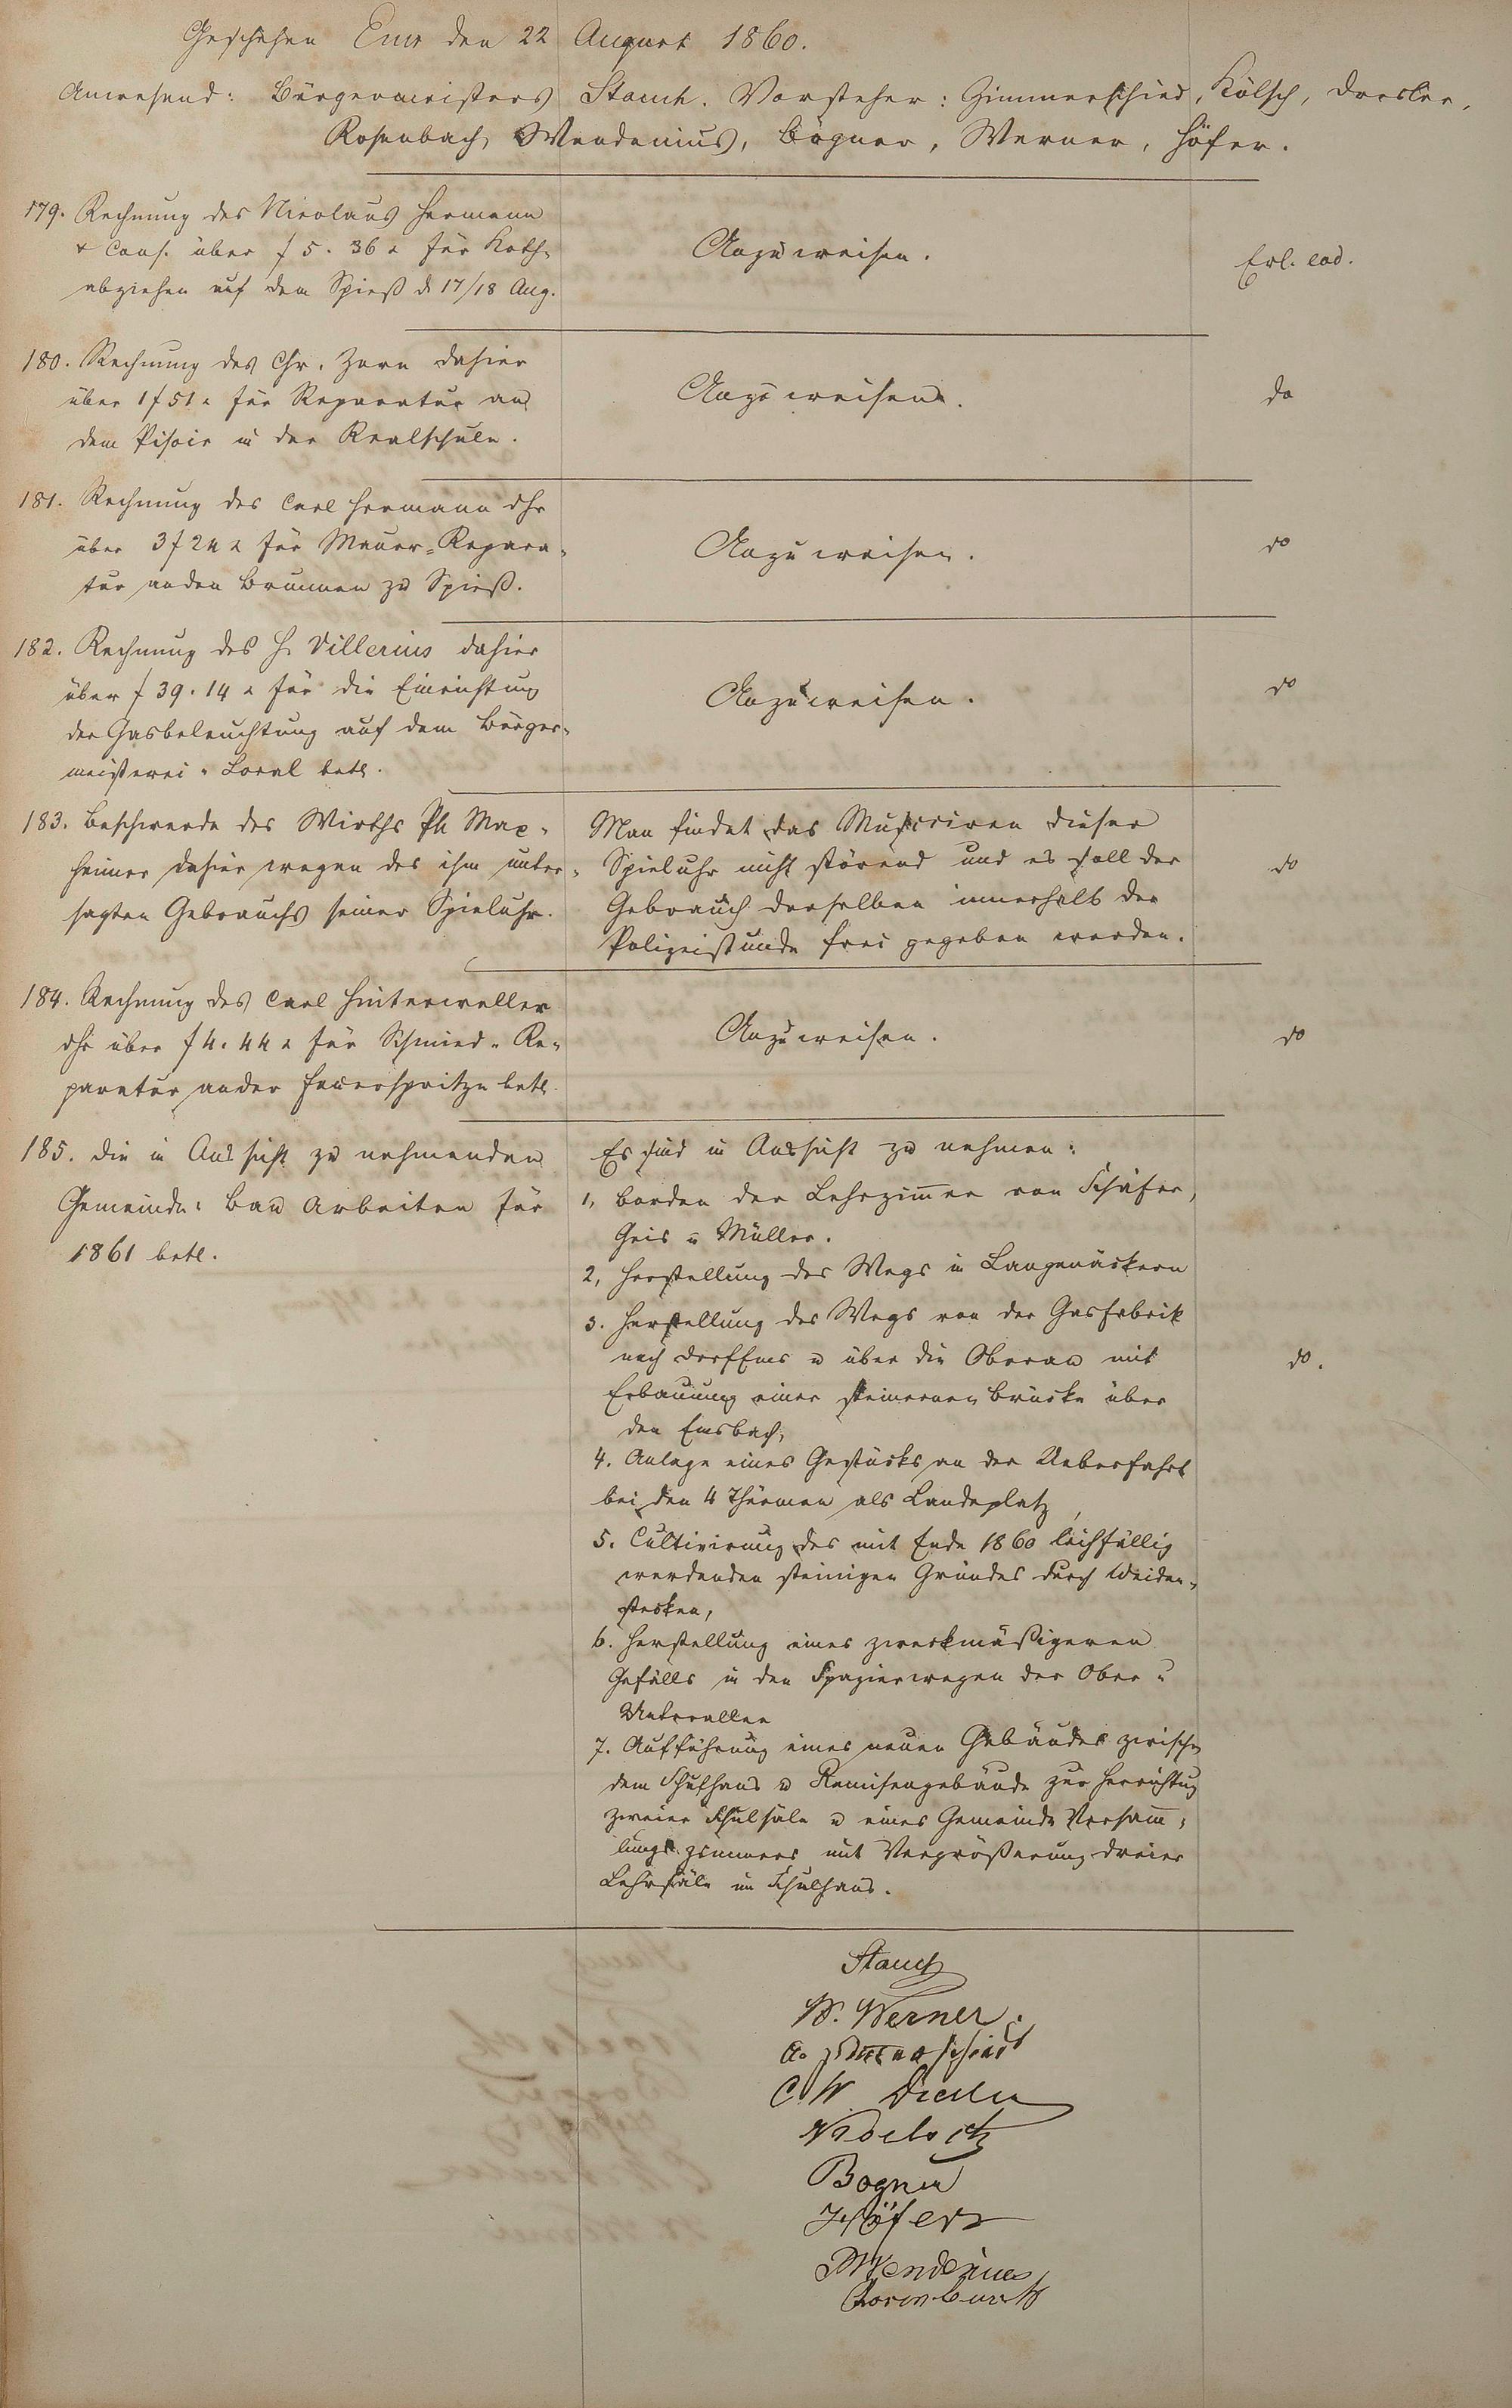 Geschehen Ems den 22 August 1860.
Anwesend: Bürgermeister Stauch. Vorsteher: Zimmerschied, Kölsch, Dresler,
Rosenbach, Wendenius, Bogner, Werner, Höfer.
179. Rechnung des Nicolaus Hermann
& Cons. über f 5. 36 x für Koth-
abziehen auf dem Spieß d 17/18 Aug.
Anzuweisen.
Erl. eod.
180. Rechnung des Chr. Zorn dahier
über 1 f 51 x für Reparatur an
dem Pissoir in der Realschule.
Anzuweisen.
do
181. Rechnung des Carl Hermann dhr
über 3 f 24 x für Mauer-Repara-
tur an den Brunnen zu Spieß.
Anzuweisen.
do
182. Rechnung des H. Villerius dahier
über f 39. 14 x für die Einrichtung
der Gasbeleuchtung auf dem Bürger-
meisterei-Local betr.
Anzuweisen.
do
183. Beschwerde des Wirths Ph Max-
heimer dahier wegen des ihm unter-
sagten Gebrauchs seiner Spieluhr.
Man findet das Musiciren dieser
Spieluhr nicht störend und es soll der
Gebrauch derselben innerhalb der
Polizeistunde frei gegeben werden.
do
184. Rechnung des Carl Hinterweller
dhr über f 4. 44 x für Schmied-Re-
paratur an der Feuerspritze betr.
Anzuweisen.
do
185. Die in Aussicht zu nehmenden
Gemeinde-Bau Arbeiten für
1861 betr.
Es sind in Aussicht zu nehmen:
1, Borden der Lehrzimmer von Schäfer,
Geis u Müller.
2, Herstellung des Wegs in Langenäckern
3. Herstellung des Wegs von der Gasfabrik
nach DorfEms u über die Oberau mit
Erbauung einer steinernen Brücke über
den Emsbach,
do.
4. Anlage eines Gestücks an der Ueberfahrt
bei den 4 Thürmen als Landeplatz,
5. Cultivirung des mit Ende 1860 leihfällig
werdenden steinigen Grundes durch Weiden-
stecken,
6. Herstellung eines zweckmäßigeren
Gefälls in den Spazierwegen der Ober u
Unterallee
7. Aufführung eines neuen Gebäudes zwischen
dem Schulhaus u Remisengebäude zur Herrichtug
zweier Schulsäle u eines Gemeinde Versamm-
lungszimmers mit Vergrößerung dreier
Lehrsäle im Schulhaus.
Stauch
W. Werner.
A. Zimmerschied
C. W. Dresler
Bogner
Höfer
Wendenius
Rosenbach